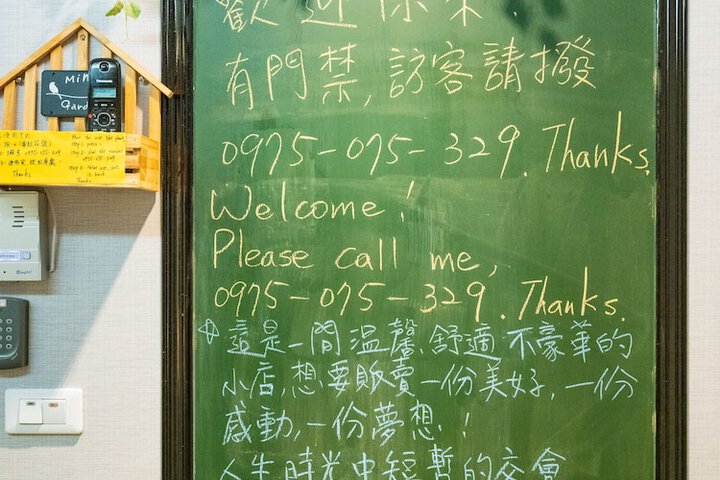 歡迎你來.
有門禁,訪客請撥
0975-075-329.Thanks.
Welcome!
Please call me,
0975-075-329.Thanks.
這是一間溫馨、舒適、不豪華的
小店,想要販賣一份美好,一份
感動,一份夢想!
人生時光中短暫的交會
Panasonic
Thanks
Thanks